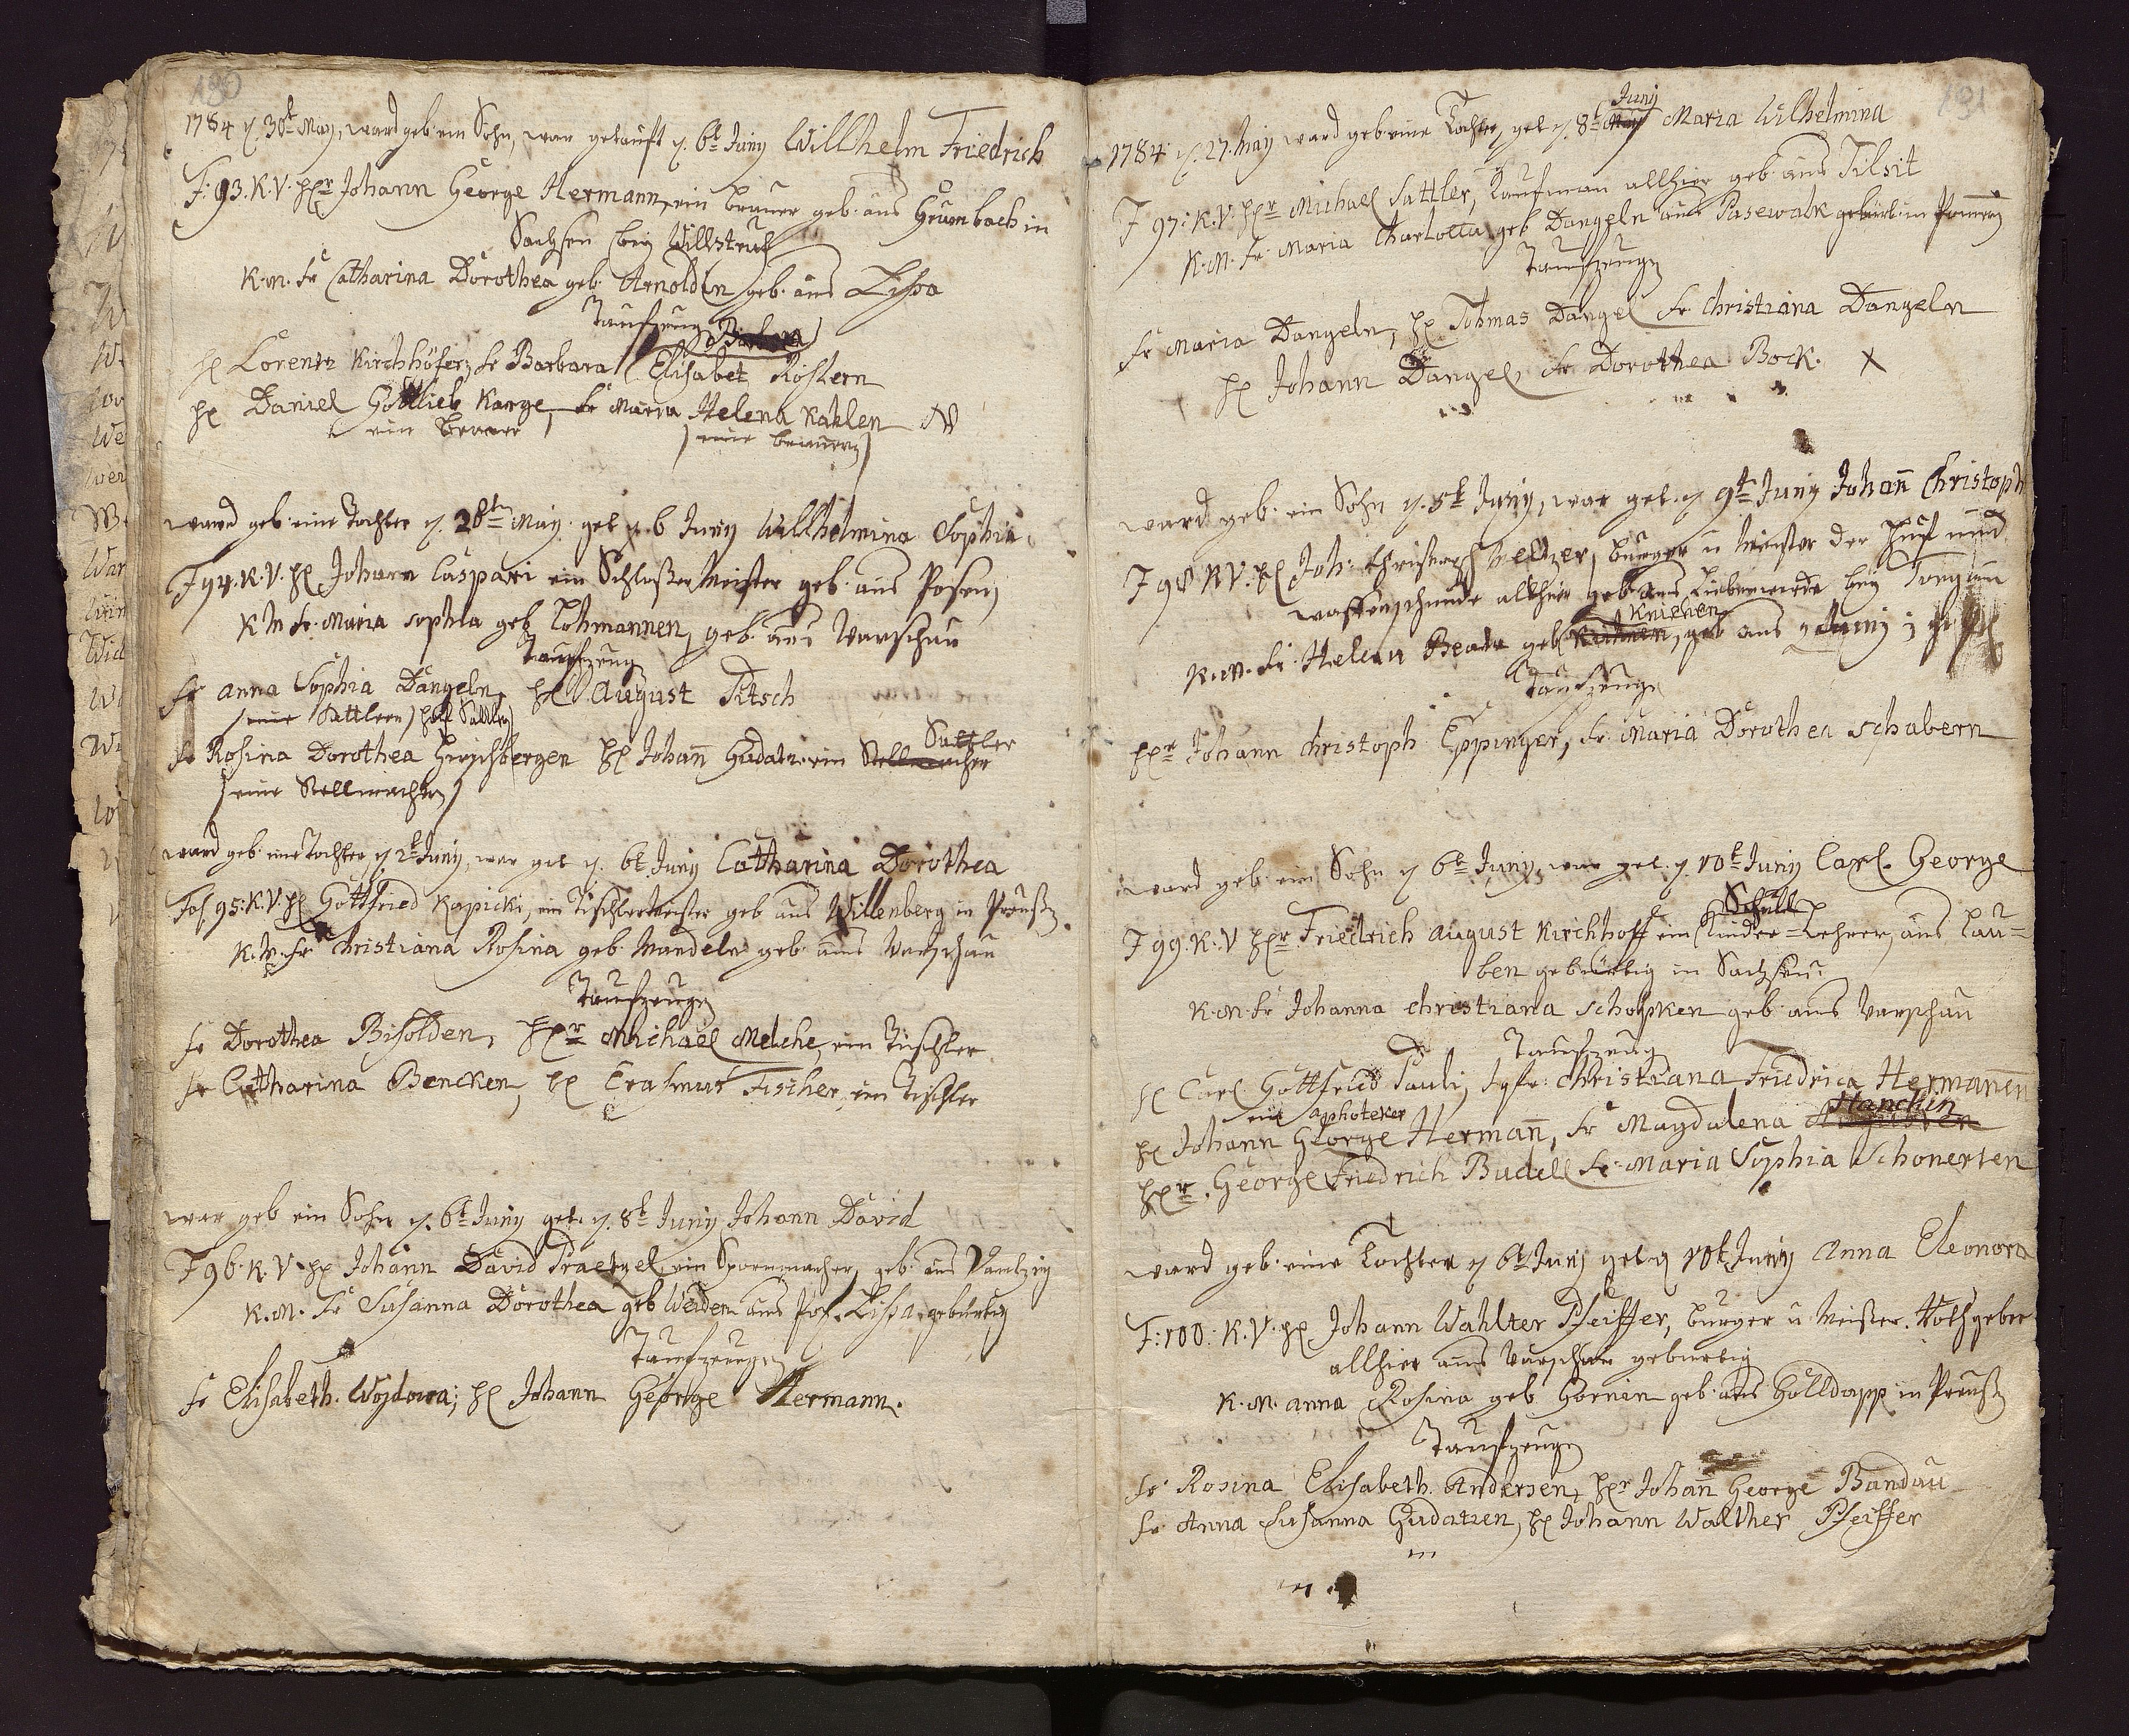 190
1784 d. 30t May, ward geb. ein Sohn, war getauft d. 6t Juny Willhelm Friedrich
F: 93. K. V. Hr Johann George Hermann, ein brauer geb. aus Grumbach in
Sachsen bey Willstruf
K. M. fr Catharina Dorothea geb. Arnoldin geb. aus Lissa
Taufzeugen
H Lorentz Kirchhöfer, fr Barbara Elisabet Röslern
H Daniel Gottlieb Karge, fr Maria Helena Kahlen
ein Brauer eine brauern
ward geb. eine Tochter d. 28t May. get d. 6 Juny Willhelmina Sophia
F 94. K. V. H Johann Caspari ein Schloßer Meister geb. aus Posen
K M fr. Maria Sophia geb Lohmannen, geb. aus Warschau
Taufzeug
fr anna Sophia Dangeln, H August Titsch
eine Sattlern Hoff Sattler
fr Rosina Dorothea Hirschbergen H Johan̄ Gudatz ein Sattler
eine Stellmachern
ward geb. eine Tochter d 2t Juny, war get d. 6t Juny Catharina Dorothea
Fol 95: K. V. H Gottfried Kapicki, ein Tischler Meister geb aus Willenberg in Preußn.
K. M. fr Christiana Rosina geb. Mandeln geb aus Warschau
Taufzeugen
fr Dorothea Bisolden, Hr Michael Melche, ein Tischler
fr Catharina Bencken, H Erasmus Fischer, ein Tischler
war geb ein Sohn d. 6t Juny get. d. 8t Juny Johann David
F 96. K. V. H Johann David Praetzel, ein Sporenmacher, geb. aus Dantzig
K. M. Fr Susanna Dorothea geb Weiden aus Pol. Lissa gebürtig
Taufzeugen
fr Elisabeth. Wojdowa; H Johann George Hermann.
191
1784 d. 27. May ward geb. eine Tochter, get d. 8t Juny Maria Wilhelmina
F 97: K. V. Hr Michael Sattler, Kaufman allhier geb. aus Tilsit
K. M. fr. Maria Charlotta geb Dangeln aus Pasewalk gebürt. in Pomern
Taufzeugen
fr Maria Dangeln, H Tohmas Dangel fr Christiana Dangeln
H Johann Dangel, fr. Dorothea Bock. X
ward geb. ein Sohn d. 5t Juny, war get. d 9t Juny Johan̄ Christoph
F 98 K V. H Joh: Christoph Meltzer, burger u Meister der Huf und
waffenschmide allhier geb. aus Liebenwerda bey Torgau
K. M. fr. Helena Beata geb Knienen, geb aus
Taufzeugen
Hr Johann Christoph Eppinger, fr. Maria Dorothea Schabern
ward geb. ein Sohn d 6t Juny, war get. d. 10t Juny Carl George
F 99. K. V Hr Friedrich August Kirchhoff ein Schull Kinder-Lehrer, aus Lau=
ben gebürtig in Sachsen.
K. M fr Johanna Christiana Schopken geb. aus Warschau
Taufzeug
H Carl Gottfried Pauli, Jgfr: Christiana Friedrica Hermanen̄
ein aphoteker
H Johann George Herman̄, fr Magdalena Hanckin
Hr. George Friedrich Budell fr. Maria Sophia Schonerten
ward geb. eine Tochter d 6t Juny get. d 10t Juny Anna Eleonora
F: 100: K. V. H Johann Wahlter Pfeiffer, burger u Meister. Rothgeber
allhier aus Warschau gebürtig
K. M. anna Rosina geb Hornin geb. aus Golldapp in Preußn
Taufzeugen
fr Rosina Elisabeth. Andersen, Hr Johan̄ George Bandau
fr Anna Susanna Gudatzen, H Johann Walther Pfeiffer